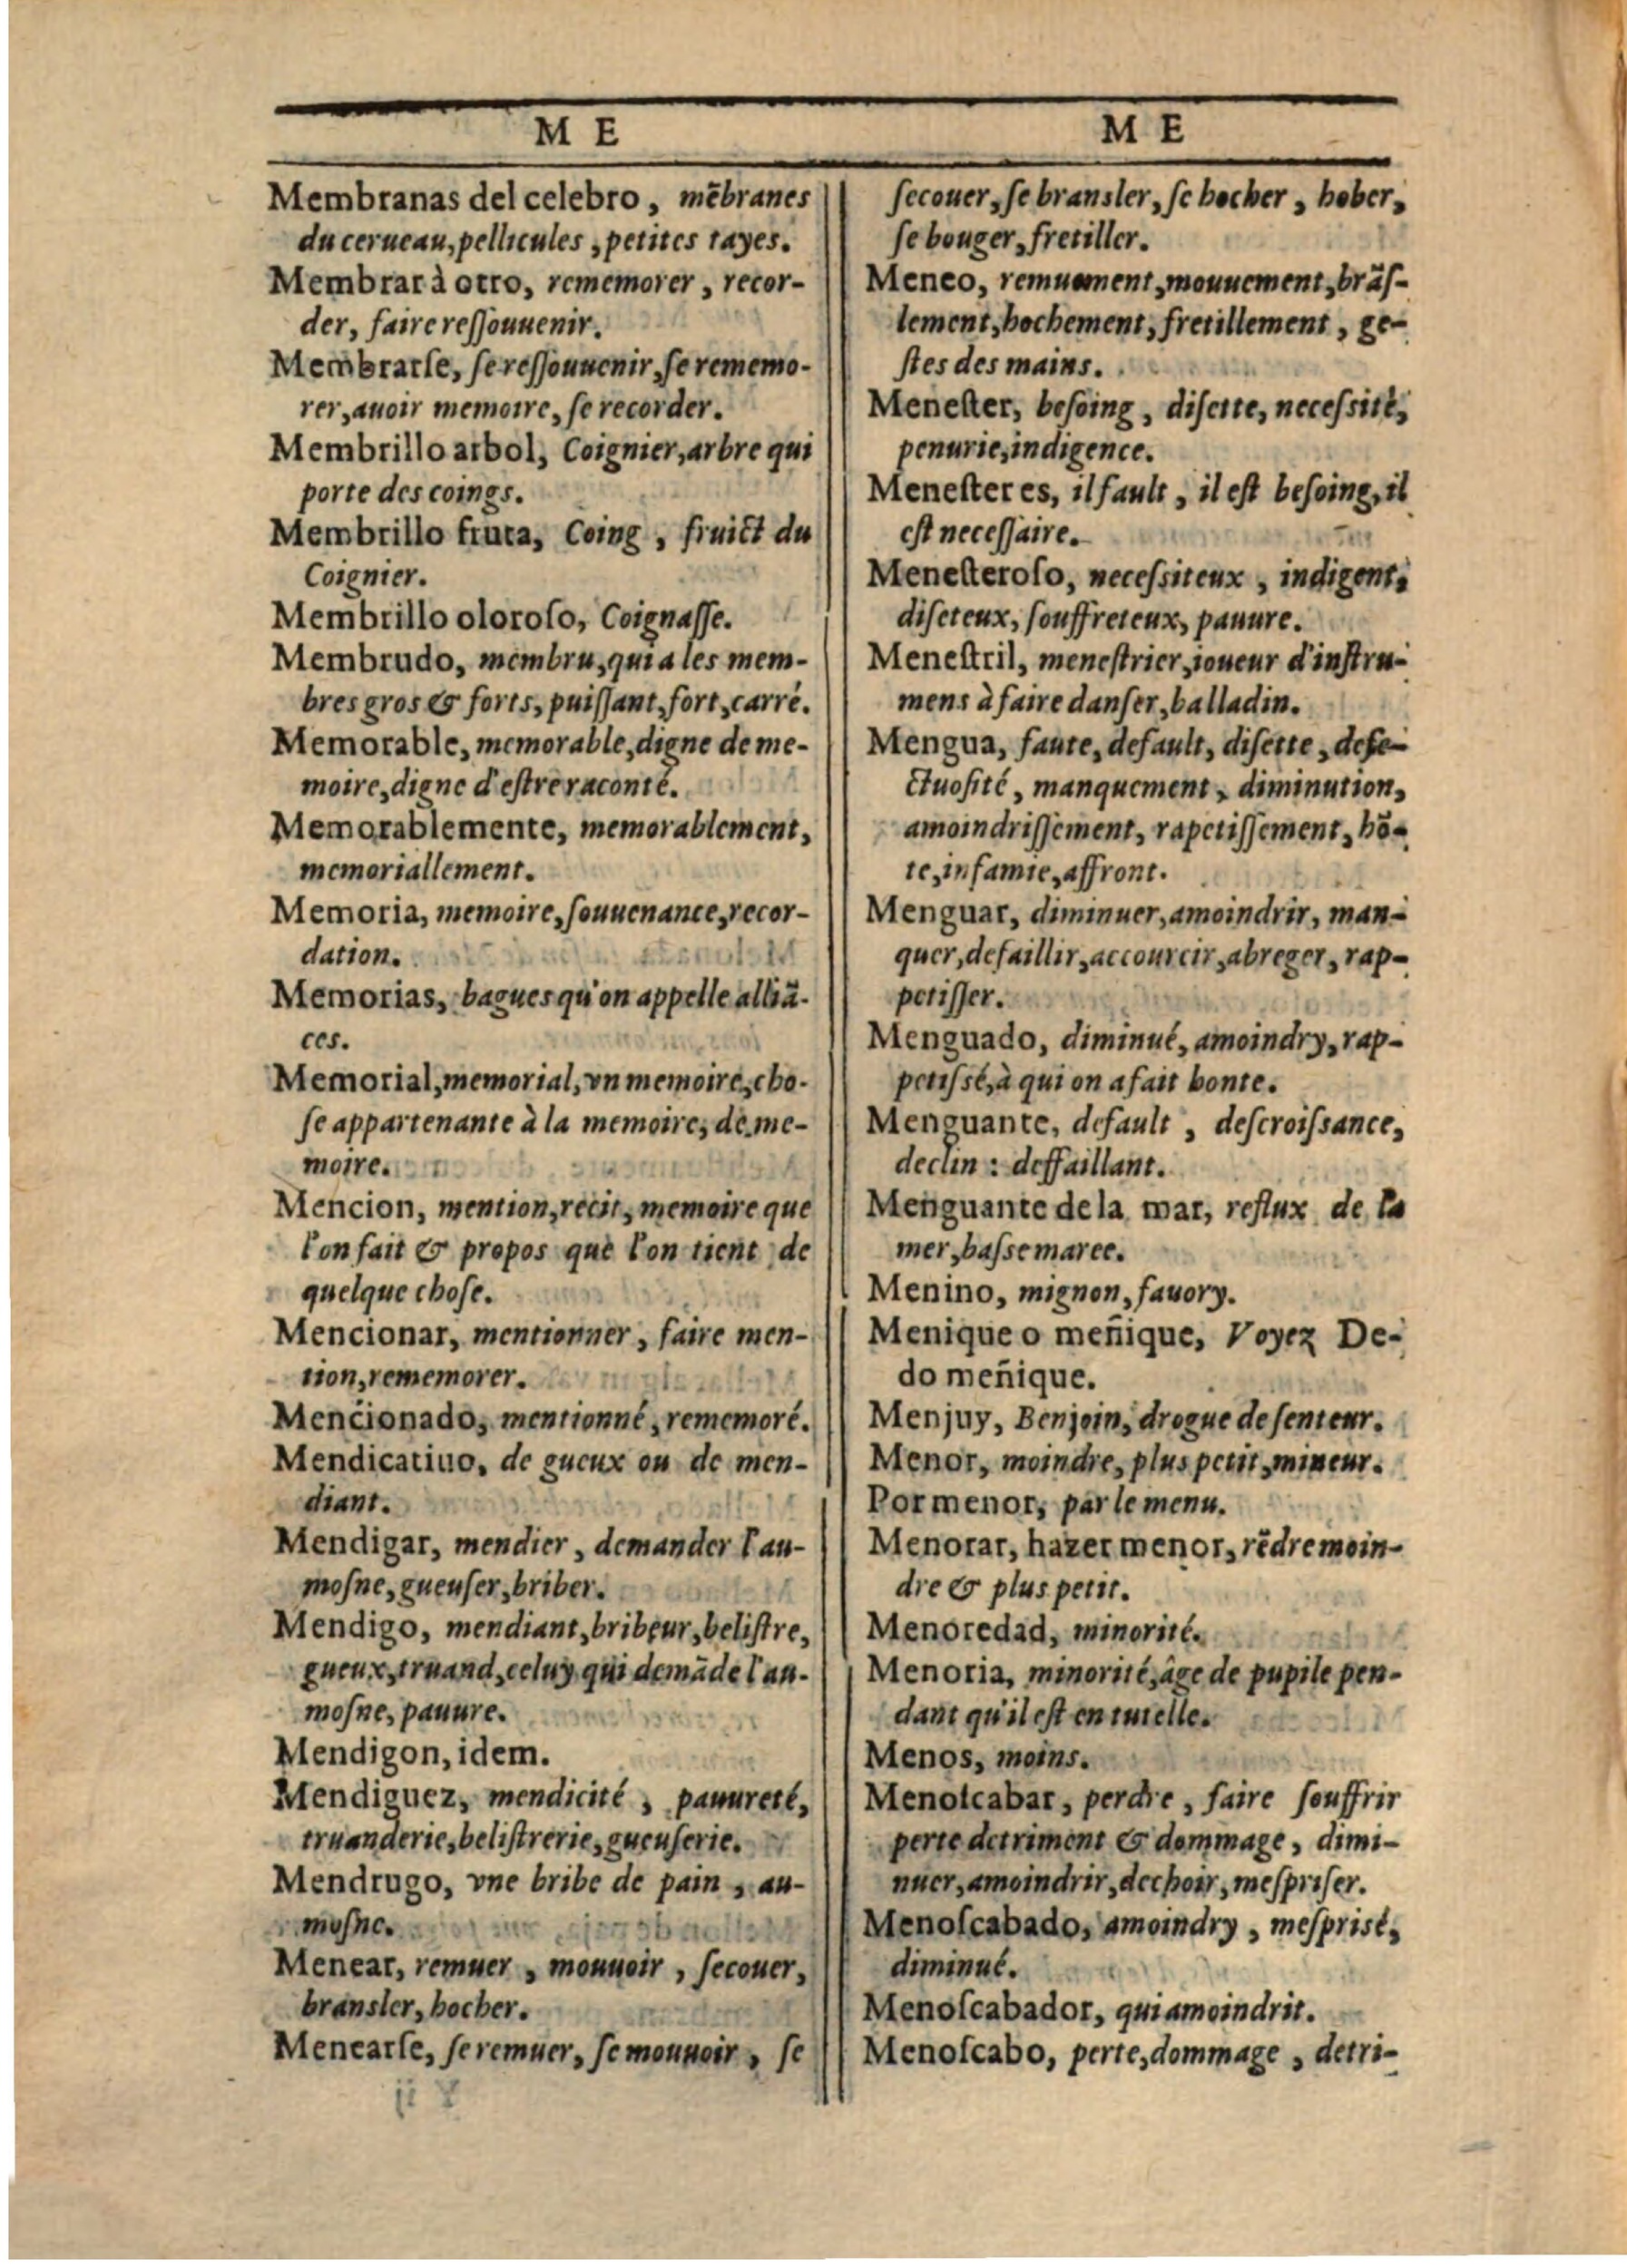 M E
Membranas del celebro, mēbranes
du cerueau, pellicules, petites tayes.
Membrar à otro, rememorer, recor-
der, faire reſſouuenir.
Membrarſe, ſe reſſouuenir, ſe rememo-
rer, auoir memoire, ſe recorder.
Membrillo arbol, Coignier, arbre qui
porte des coings.
Membrillo fruta, Coing, fruict du
Coignier.
Membrillo oloroſo, Coignaſſe.
Membrudo, membru, qui a les mem-
bres gros & forts, puiſſant, fort, carré.
Memorable, memorable, digne de me-
moire, digne d'eſtre raconté.
Memorablemente, memorablement,
memoriallement.
Memoria, memoire, ſouuenance, recor-
dation.
Memorias, bagues qu'on appelle alliā-
ces.
Memorial, memorial, vn memoire, cho-
ſe appartenante à la memoire, de me-
moire.
Mencion, mention, recit, memoire que
l'on fait & propos que l'on tient de
quelque choſe.
Mencionar, mentionner, faire men-
tion, rememorer.
Mencionado, mentionné, rememoré.
Mendicatiuo, de gueux ou de men-
diant.
Mendigar, mendier, demander l'au-
moſne, gueuſer, briber.
Mendigo, mendiant, bribeur, beliſtre,
gueux, truand, celuy qui demāde l'au-
moſne, pauure.
Mendigon, idem.
Mendiguez, mendicité, pauureté,
truanderie, beliſtrerie, gueuſerie.
Mendrugo, vne bribe de pain, au-
muſne.
Menear, remuer, mouuoir, ſecouer,
bransler, hocher.
Menearſe, ſe remuer, ſe mouuoir, ſe
M E
ſecouer, ſe bransler, ſe hocher, hober,
ſe bouger, fretiller.
Meneo, remuement, mouuement, brāſ-
lement, hochement, fretillement, ge-
ſtes des mains.
Meneſter, beſoing, diſette, neceſsité,
penurie, indigence.
Meneſter es, il fault, il eſt beſoing, il
eſt neceſſaire.
Meneſteroſo, neceſsiteux, indigent,
diſeteux, ſouffreteux, pauure.
Meneſtril, meneſtrier, ioueur d'inſtru-
mens à faire danſer, balladin.
Mengua, faute, default, diſette, defe-
ctuoſité, manquement, diminution,
amoindriſſement, rapetiſſement, hō-
te, infamie, affront.
Menguar, diminuer, amoindrir, man-
quer, defaillir, accourcir, abreger, rap-
petiſſer.
Menguado, diminué, amoindry, rap-
petiſsé, à qui on a fait honte.
Menguante, default, deſcroiſsance,
declin : deffaillant.
Menguante de la mar, reflux de la
mer, baſse maree.
Menino, mignon, fauory.
Menique o meñique, Voyez De-
do meñique.
Menjuy, Benjoin, drogue de ſenteur.
Menor, moindre, plus petit, mineur.
Por menor, par le menu.
Menorar, hazer menor, rēdre moin-
dre & plus petit.
Menoredad, minorité.
Menoria, minorité, âge de pupile pen-
dant qu'il eſt en tutelle.
Menos, moins.
Menoſcabar, perdre, faire ſouffrir
perte detriment & dommage, dimi-
nuer, amoindrir, dechoir, meſpriſer.
Menoſcabado, amoindry, meſprisé,
diminué.
Menoſcabador, qui amoindrit.
Menoſcabo, perte, dommage, detri-